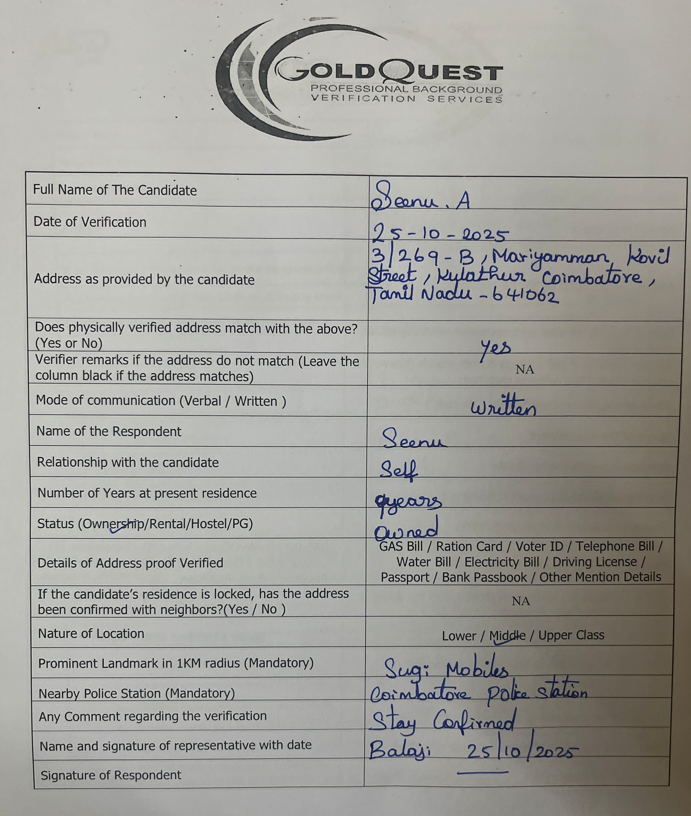 GOLDQUEST
PROFESSIONAL BACKGROUND
VERIFICATION SERVICES
Full Name of The Candidate Seenu. A
Date of Verification 25-10-2025
Address as provided by the candidate 3/269-B, Mariyamman Kovil
Street, Kylathur Coimbatore,
Tamil Nadu - 641062
Does physically verified address match with the above?
(Yes or No) Yes
Verifier remarks if the address do not match (Leave the
column black if the address matches) NA
Mode of communication (Verbal / Written ) Written
Name of the Respondent Seenu
Relationship with the candidate Self
Number of Years at present residence years
Status (Ownership/Rental/Hostel/PG) Owned
Details of Address proof Verified
GAS Bill / Ration Card / Voter ID / Telephone Bill /
Water Bill / Electricity Bill / Driving License /
Passport / Bank Passbook / Other Mention Details
If the candidate's residence is locked, has the address
been confirmed with neighbors?(Yes / No ) NA
Nature of Location Lower / Middle / Upper Class
Prominent Landmark in 1KM radius (Mandatory) Sugi Mobiles
Nearby Police Station (Mandatory) Coimbatore police station
Any Comment regarding the verification Stay Confirmed
Name and signature of representative with date Balaji 25/10/2025
Signature of Respondent